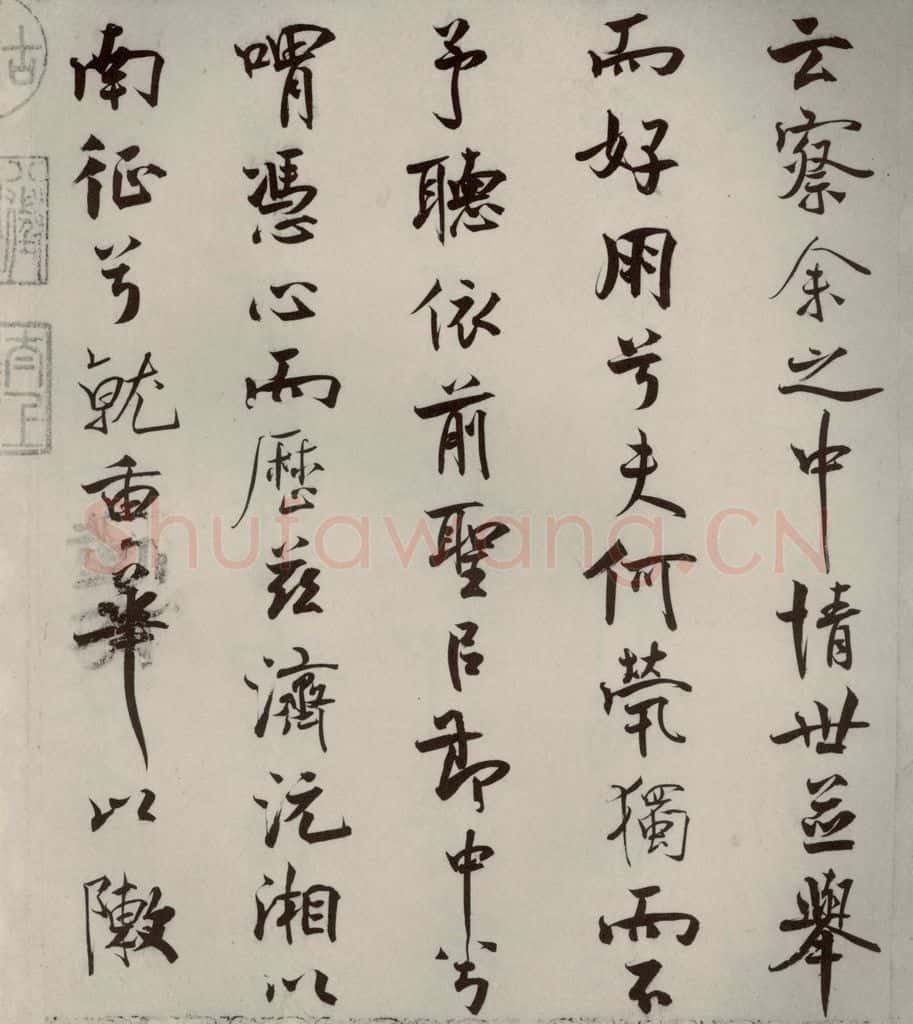 云察余之中情世並舉
而好朋兮夫何煢獨而不
予聽依前聖㠯節中兮
喟憑心而歷茲濟沅湘以
南征兮就重華以敶
古
Shufawang.CN